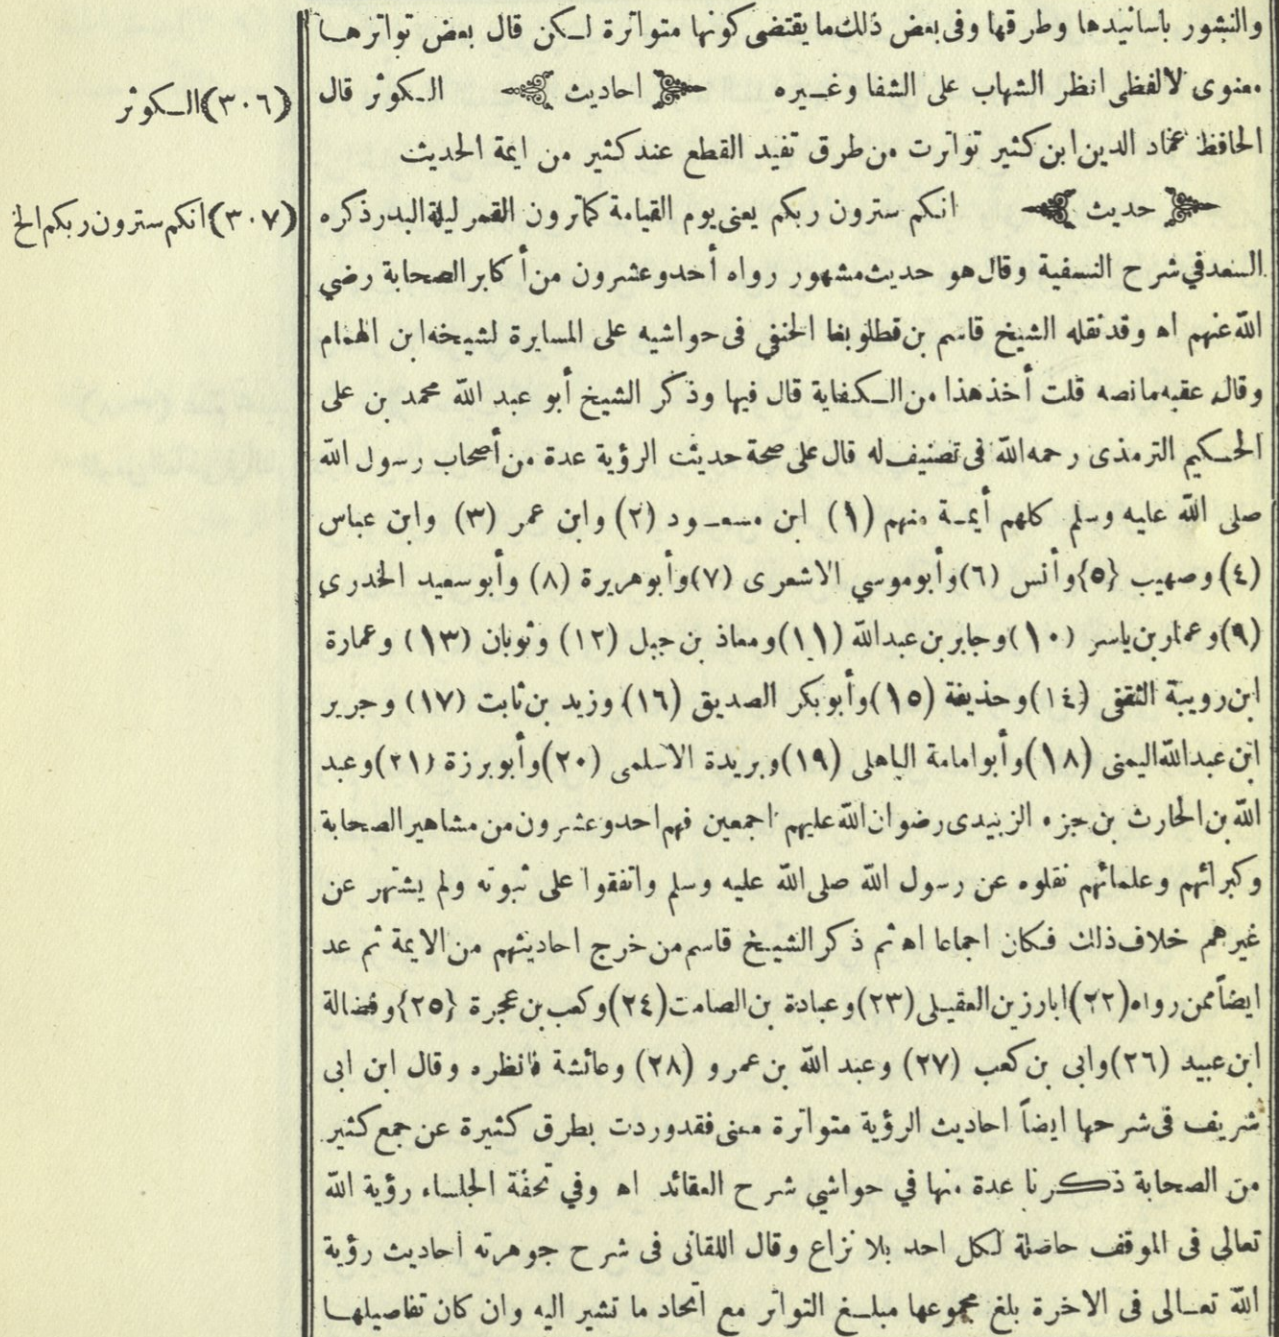 والنشور باسانيدها وطرقها وفى بعض ذلك ما يقتضى كونها متواترة لكن قال بعض تواترها
معنوى لا لفظى انظر الشهاب على الشفا وغيره ﴿ احاديث ﴾ الكوثر قال
(٣٠٦) الكوثر
الحافظ عماد الدين ابن كثير تواترت من طرق تفيد القطع عند كثير من ايمة الحديث
﴿ حديث ﴾ انكم سترون ربكم يعنى يوم القيامة كما ترون القمر ليلة البدر ذكره
(٣٠٧) انكم سترون ربكم الخ
السعد في شرح النسفية وقال هو حديث مشهور رواه أحد وعشرون من أكابر الصحابة رضي
الله عنهم اه وقد نقله الشيخ قاسم بن قطلوبغا الحنفي فى حواشيه على المسايرة لشيخه ابن الهمام
وقال عقبه ما نصه قلت أخذ هذا من الكفاية قال فيها وذكر الشيخ أبو عبد الله محمد بن على
الحكيم الترمذى رحمه الله فى تصنيف له قال على صحة حديث الرؤية عدة من أصحاب رسول الله
صلى الله عليه وسلم كلهم أيمة منهم (١) ابن مسعود (٢) وابن عمر (٣) وابن عباس
(٤) وصهيب {٥} وأنس (٦) وأبو موسي الاشعرى (٧) وأبو هريرة (٨) وأبو سعيد الخدري
(٩) وعمار بن ياسر (١٠) وجابر بن عبد الله (١١) ومعاذ بن جبل (١٢) وثوبان (١٣) وعمارة
ابن رويبة الثقفى (١٤) وحذيفة (١٥) وأبو بكر الصديق (١٦) وزيد بن ثابت (١٧) وجرير
ابن عبد الله اليمنى (١٨) وأبو امامة الباهلى (١٩) وبريدة الاسلمى (٢٠) وأبو برزة (٢١) وعبد
الله بن الحارث بن جزء الزبيدى رضوان الله عليهم اجمعين فهم احد وعشرون من مشاهير الصحابة
وكبرائهم وعلمائهم نقلوه عن رسول الله صلى الله عليه وسلم واتفقوا على ثبوته ولم يشتهر عن
غيرهم خلاف ذلك فكان اجماعا اه ثم ذكر الشيخ قاسم من خرج احاديثهم من الايمة ثم عد
ايضاً ممن رواه (٢٢) ابا رزين العقيلى (٢٣) وعبادة بن الصامت (٢٤) وكعب بن عجرة {٢٥} وفضالة
ابن عبيد (٢٦) وابى بن كعب (٢٧) وعبد الله بن عمرو (٢٨) وعائشة فانظره وقال ابن ابى
شريف فى شرحها ايضاً احاديث الرؤية متواترة معنى فقد وردت بطرق كثيرة عن جمع كثير
من الصحابة ذكرنا عدة منها في حواشي شرح العقائد اه وفي تحفة الجلساء رؤية الله
تعالى فى الموقف حاصلة لكل احد بلا نزاع وقال اللقانى فى شرح جوهرته احاديث رؤية
الله تعالى فى الاخرة بلغ مجموعها مبلغ التواتر مع اتحاد ما تشير اليه وان كان تفاصيلها